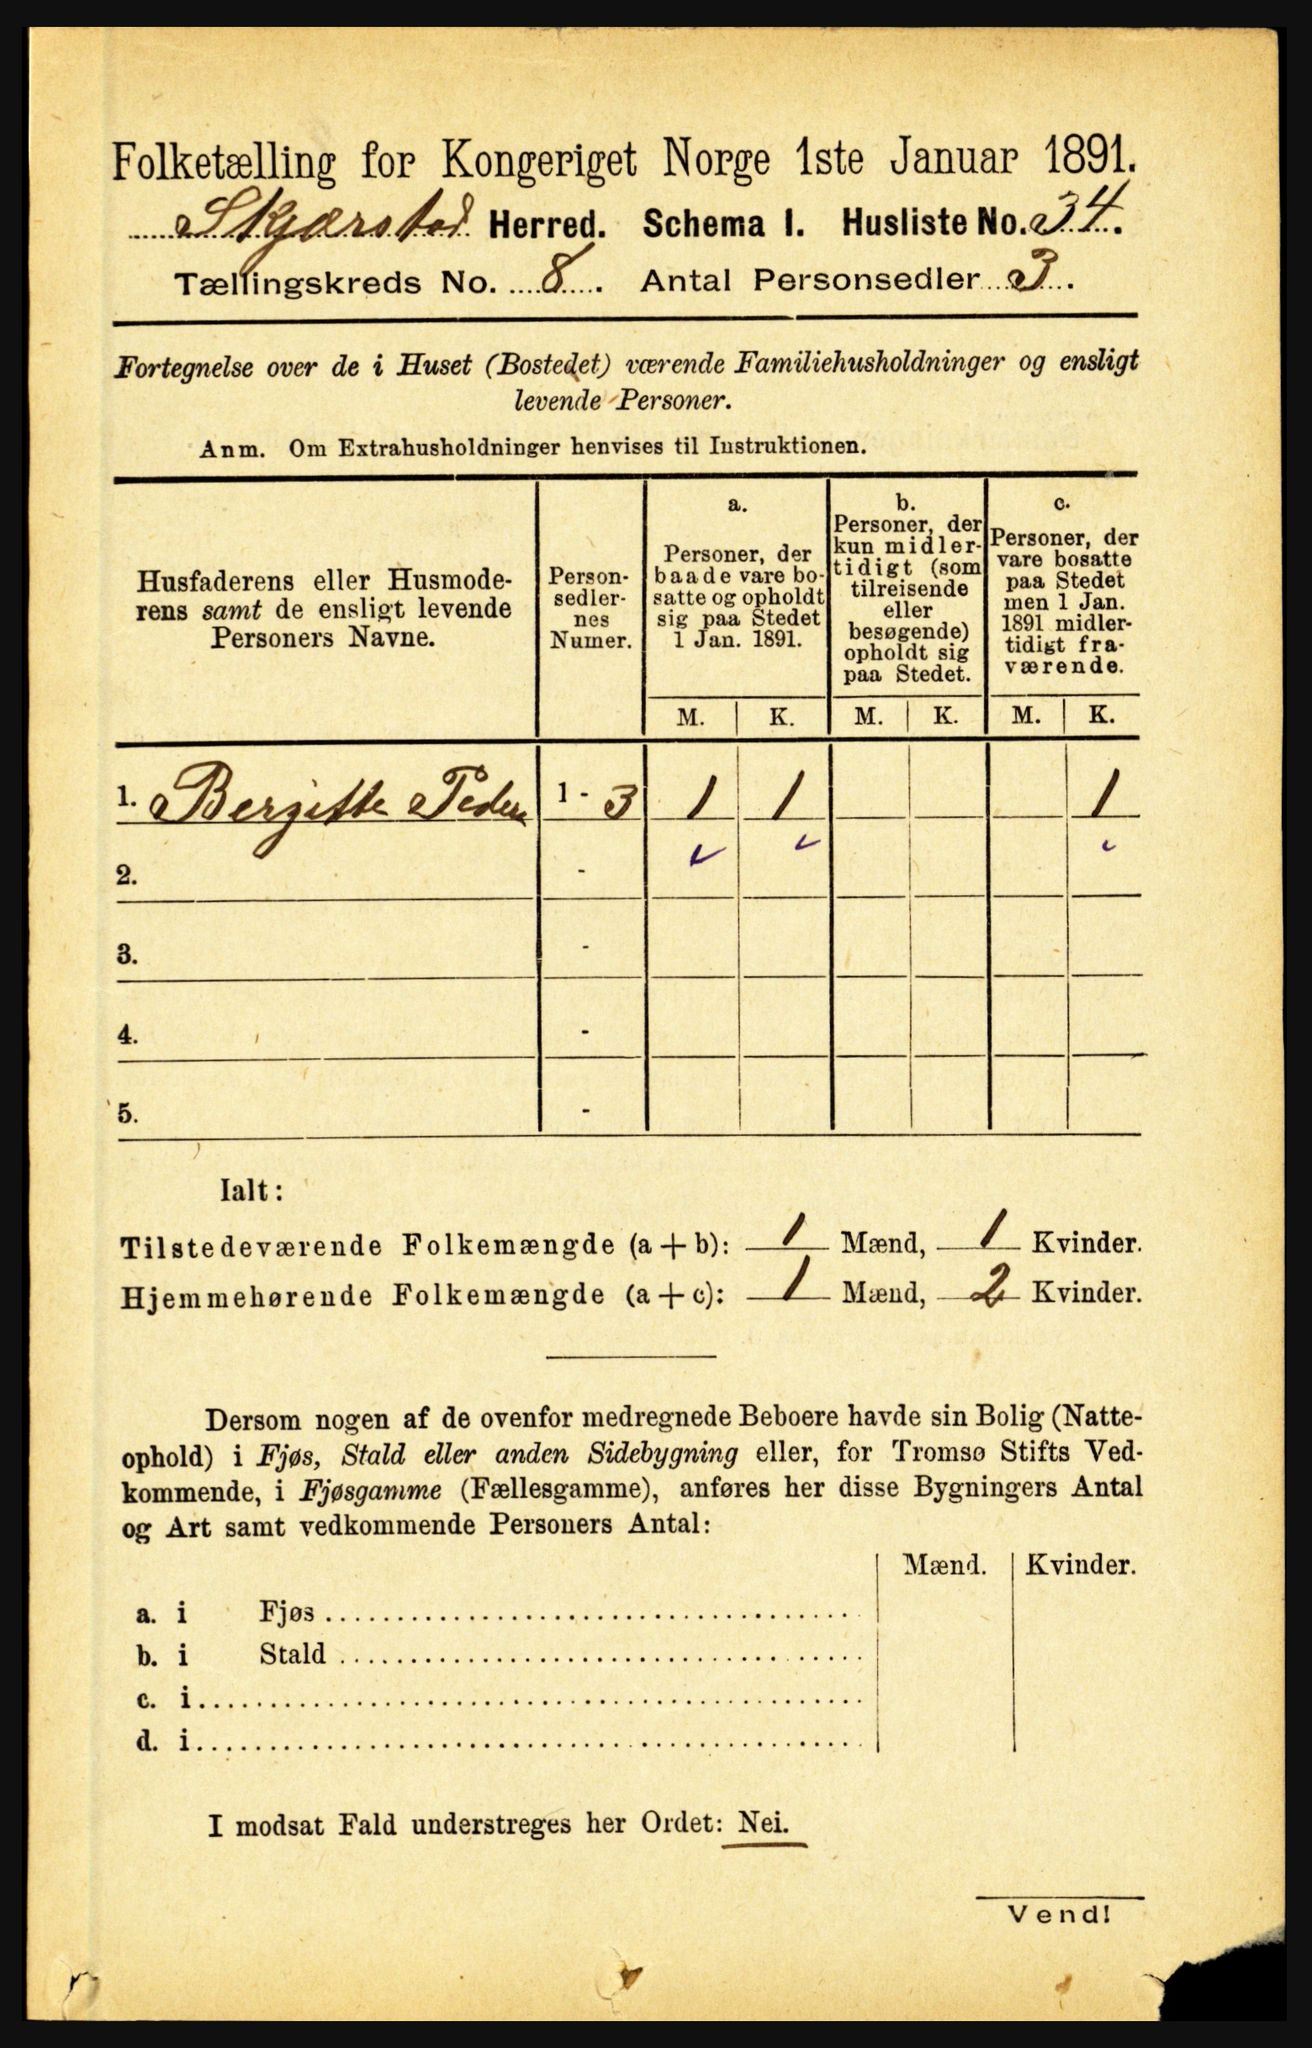 Folketælling for Kongeriget Norge 1ste Januar 1891.
Skjærstad Herred. Schema I. Husliste No. 34.
Tællingskreds No. 8. Antal Personsedler 3.
Fortegnelse over de i Huset (Bostedet) værende Familiehusholdninger og ensligt
levende Personer.
Anm. Om Extrahusholdninger henvises til Instruktionen.
Husfaderens eller Husmode-
rens samt de ensligt levende
Personers Navne.
Person-
sedler-
nes
Numer.
a.
Personer, der
baade vare bo-
satte og opholdt
sig paa Stedet
1 Jan. 1891.
b.
Personer, der
kun midler-
tidigt (som
tilreisende
eller
besøgende)
opholdt sig
paa Stedet.
c.
Personer, der
vare bosatte
paa Stedet
men 1 Jan.
1891 midler-
tidigt fra-
værende.
M. K. M. K. M. K.
1. Bergitte Peders 1 - 3 1 1 1
2. -
3. -
4. -
5. -
Ialt:
Tilstedeværende Folkemængde (a + b): 1 Mænd, 1 Kvinder.
Hjemmehørende Folkemængde (a + c): 1 Mænd, 2 Kvinder.
Dersom nogen af de ovenfor medregnede Beboere havde sin Bolig (Natte-
ophold) i Fjøs, Stald eller anden Sidebygning eller, for Tromsø Stifts Ved-
kommende, i Fjøsgamme (Fællesgamme), anføres her disse Bygningers Antal
og Art samt vedkommende Personers Antal:
Mænd. Kvinder.
a. i Fjøs
b. i Stald
c. i
d. i
I modsat Fald understreges her Ordet: Nei.
Vend!